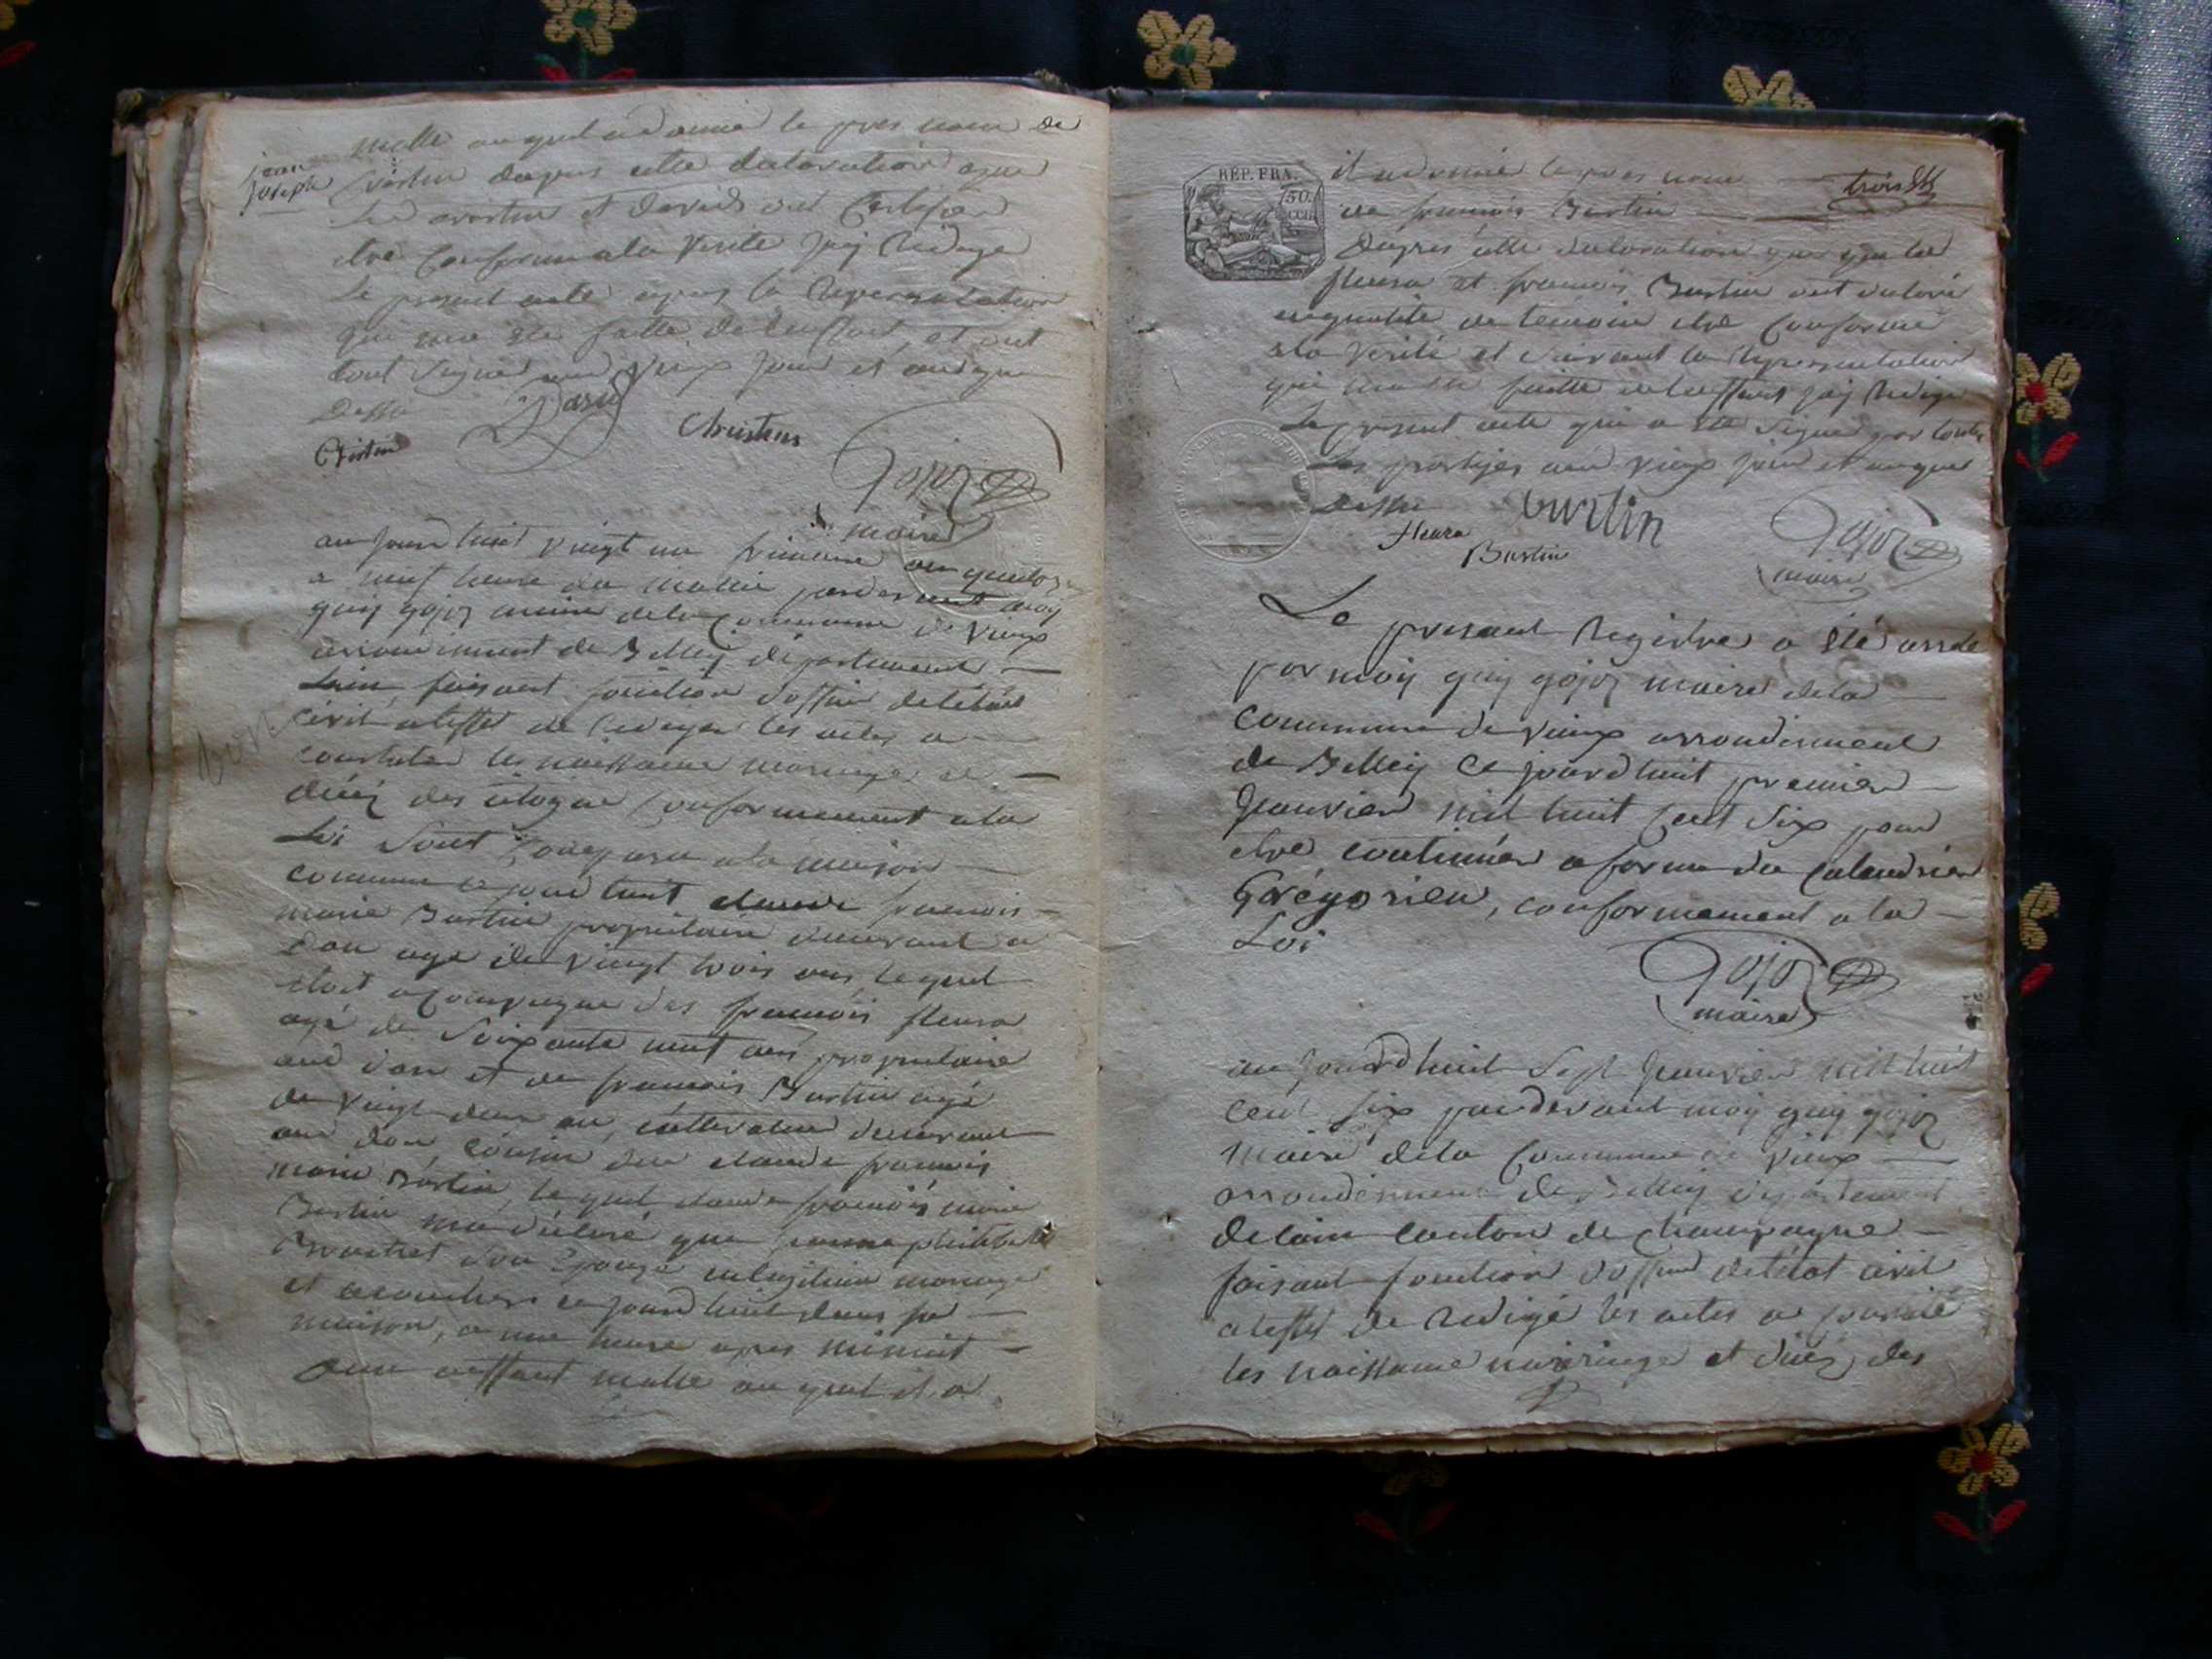 malle auquel a donné le pres nom de
jean
joseph
Cristin dapres cette declaration que
les cristin et david ont Certifier
etre Conforme a la verité jaÿ Rédigé
Le present acte apres la Representation
qui ma été faitte de lenffant, et ont
tout Signé aud vieux jour et and que
Dessu
Cristin
Christin
Gojoz
maire
au jourdhuit vingt un frimaire an quatorze
a neuf heure du matin pardevant moÿ
guÿ gojoz maire de la Commune de vieux
arrondiment de Belleÿ département
Lain, faisant fonction dofficié de létat
civil a leffet de Rediger les actes a
constater les naissance mariage et
décéz des citoyen Conformement a la
Loi Sont Comparu a la maison
commune ce jourdhuit claude francois
marie Bertin propriétaire demeurant a
Don agé de vingt trois ans, lequel
etoit acompagné des francois fleura
agé de Soixante neuf ans propriétaire
aud don et de francois Burtin agé
de vingt deux an, cultivateur demeurant
aud don, cousin du claude francois
marie Burtin, le quel claude francois marie
Burtin ma déclaré que
son Epouze en legitime mariage
et acouchers ce jourdhuit dans sa
maison, a une heure apres minuit
dun enffant malle au quel il a
bon
RÉP. FRA.
50.
CEN.
il a donné le pres nom
trois
de francois Burtin
Dapres cette declaration que les
fleura et francois Burtin ont declaré
en qualité de temoin etre Conforme
a la Verité et Suivant la Representation
qui ma été faitte de lenffant jaÿ Redigé
Le present acte qui a été Signé par toute
Les partyes aud vieux jour et an que
Dessu
fleura
burtin
Burtin
Gojoz
maire
Le present Registre a été arreté
par moiÿ guÿ gojoz maire de la
Commune de vieux arrondiment
de Belleÿ Ce jourdhuit premier
Janvier mil huit Cent Six pour
etre continuér a forme du Calendrier
Grégorien, conformement a la
Loi
Gojoz
maire
au jourdhuit Sept Janvier mil huit
Cent Six pardevant moÿ guÿ gojoz
Maire de la Commune de Vieux
arrondissement de Belleÿ département
de lain Canton de Champagne
faisant fonction dofficié de létat civil
a leffet de Redigé les actes
les naissance mariage et décéz des